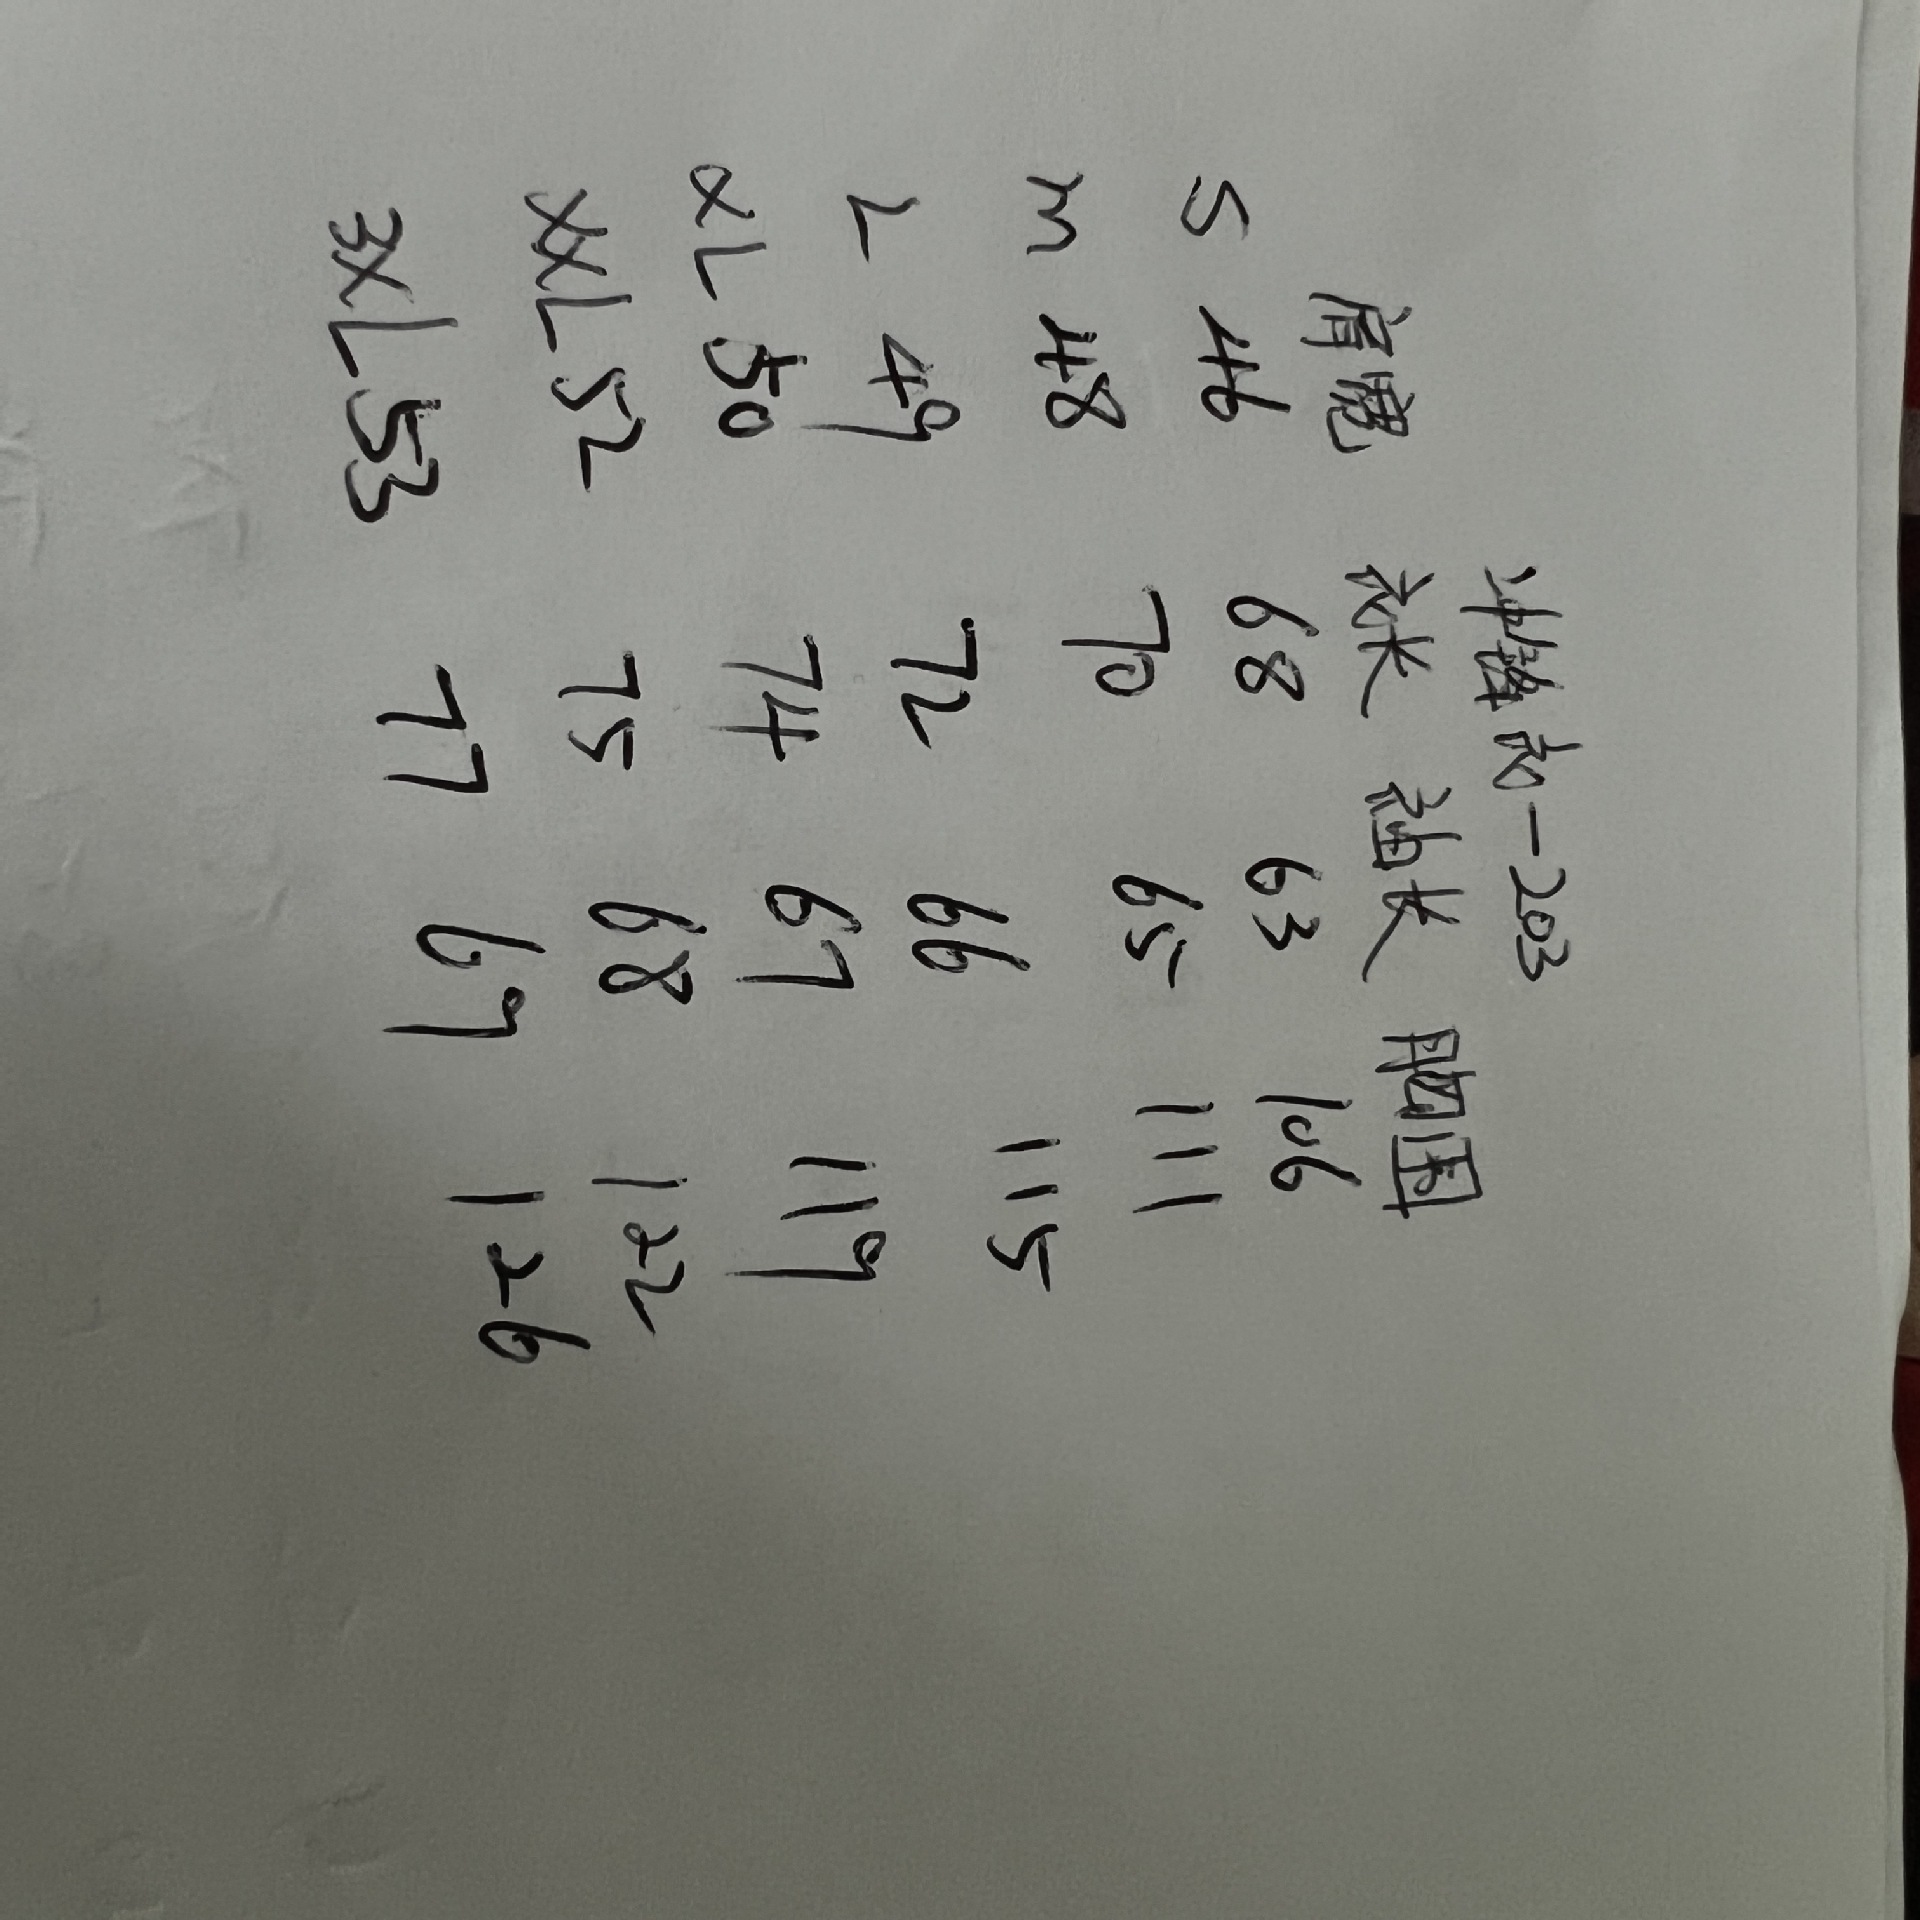 冲锋衣-203
肩宽 衣长 袖长 胸围
S 46 68 63 106
m 48 70 65 111
L 49 72 66 115
XL 50 74 67 119
XXL 52 75 68 122
3XL 53 77 69 126